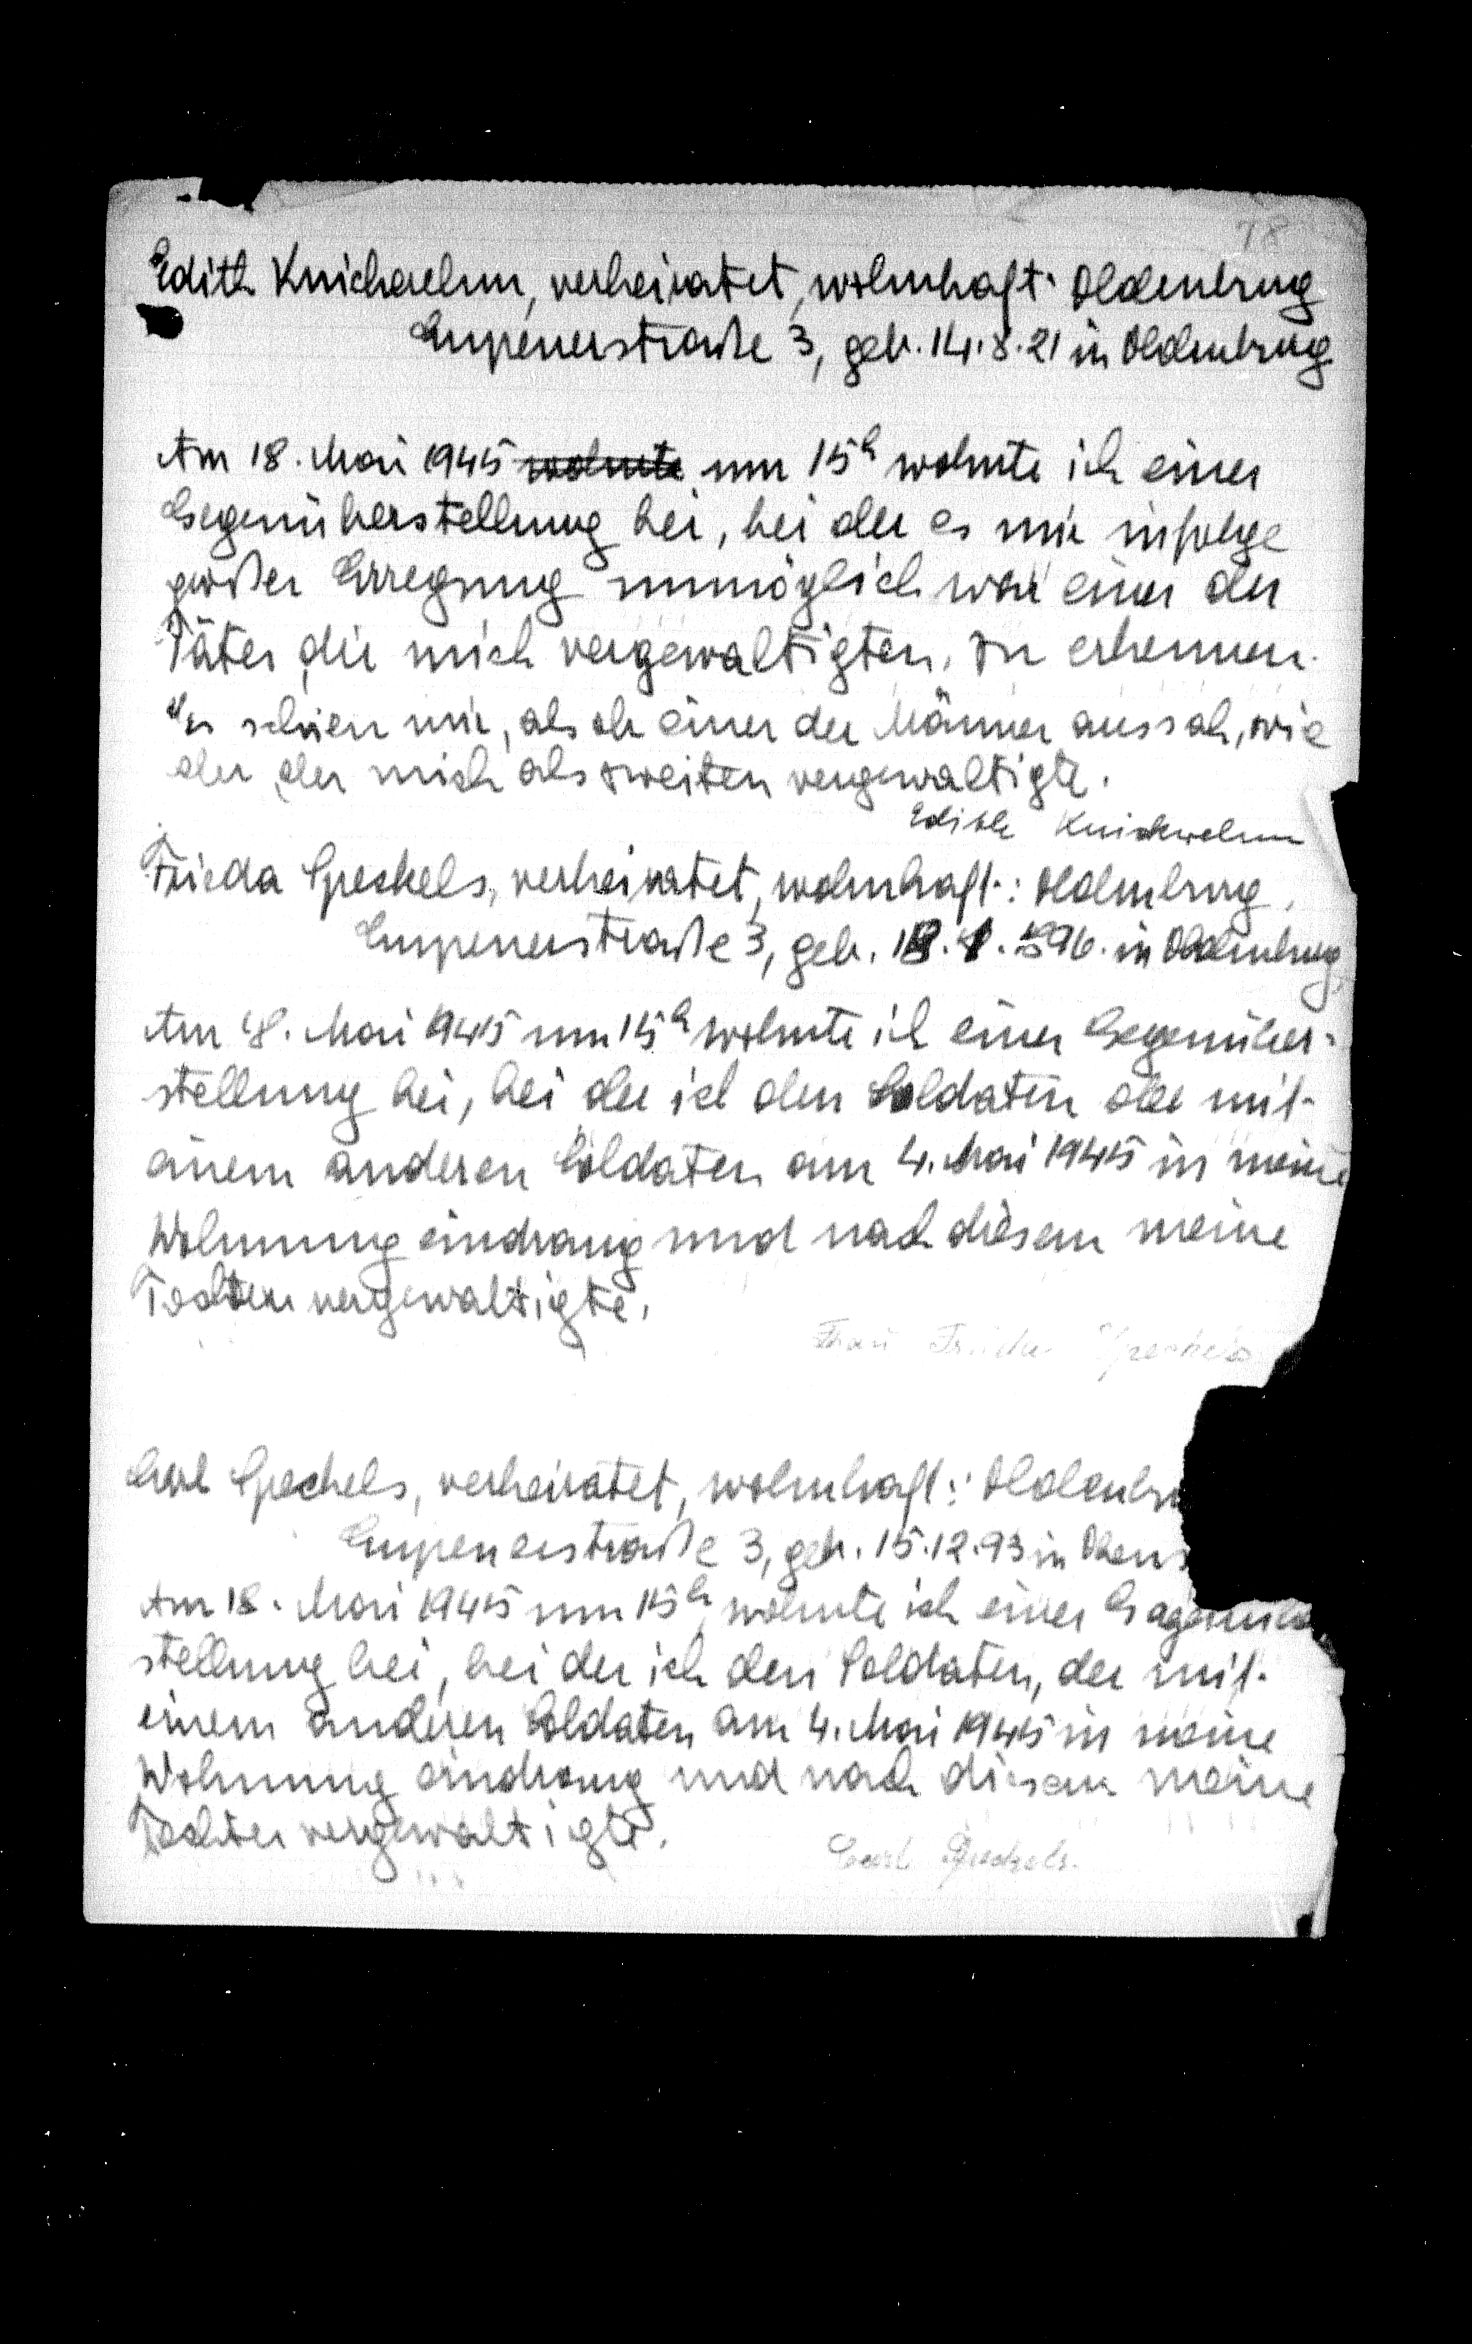 78
Edith Knickrehm, verheiratet, wohnhaft: Oldenburg
Eupenerstraße 3, geb. 14.8.21 in Oldenburg
Am 18. Mai 1945 wohnte um 15h wohnte ich einer
Gegenüberstellung bei, bei der es mir infolge
großer Erregung unmöglich war einer der
Täter, die mich vergewaltigten, zu erkennen.
Es schien mir, als ob einer der Männer aussah, wie
der, der mich als zweiten vergewaltigte.
Edith
Frieda Speckels, verheiratet, wohnhaft: Oldenburg,
Eupenerstraße 3, geb. 1896. in Oldenburg
Am 18. Mai 1945 um 15h wohnte ich einer Gegenüber-
stellung bei, bei der ich den Soldaten der mit
einem anderen Soldaten am 4. Mai 1945 in meine
Wohnung eindrang und nach diesem meine
Tochter vergewaltigte.
Frau Frieda Speckels
Carl Speckels, verheiratet, wohnhaft: Oldenbu
Eupenerstraße 3, geb. 15.12.93 in
Am 18. Mai 1945 um 15h wohnte ich einer Gegenüb
stellung bei, bei der ich den Soldaten, der mit
einem anderen Soldaten am 4. Mai 1945 in meine
Wohnung eindrang und nach diesem meine
Tochter vergewaltigte.
Carl Speckels.